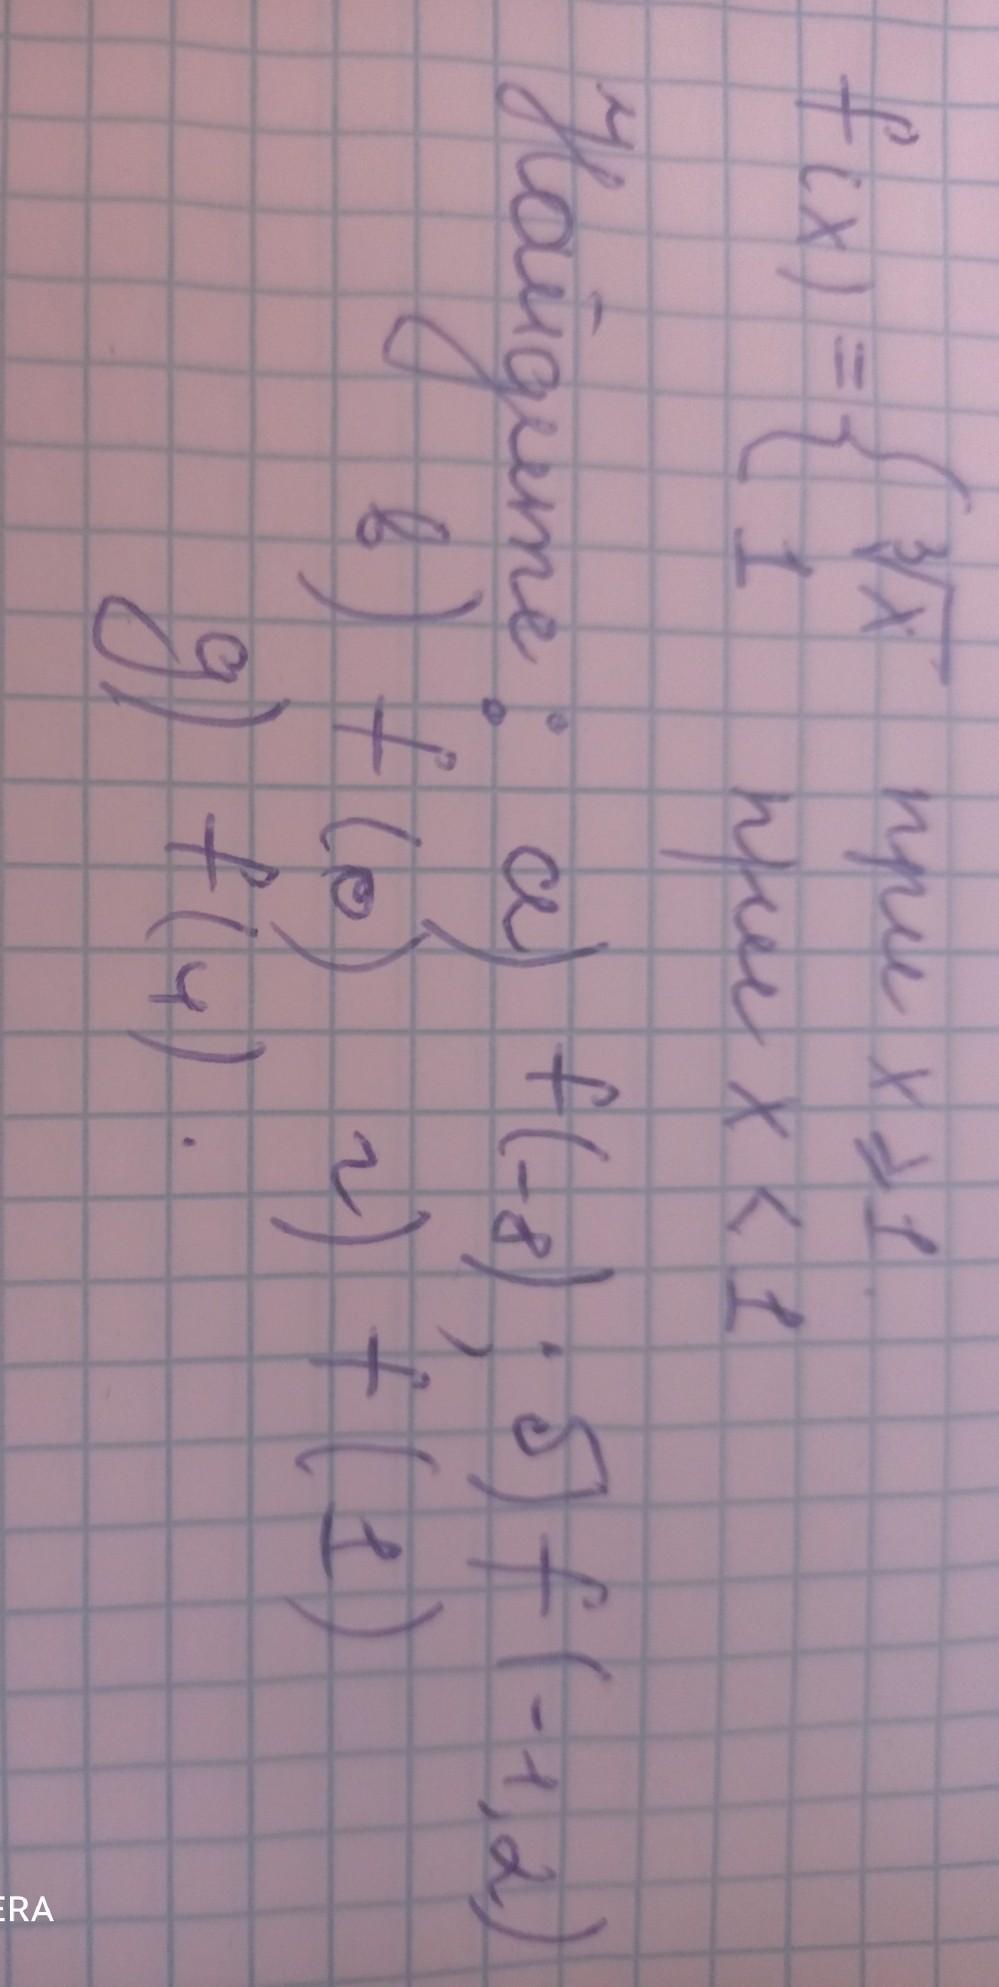 f(x) = { ∛x при x ⩾ 1
1 при x < 1
Найдите: а) f(-8); б) f(-1,2)
в) f(0) г) f(1)
д) f(4).
ERA